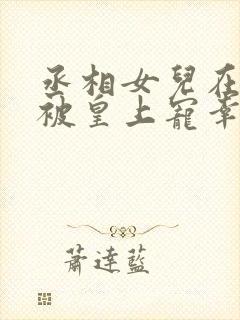 丞相女兒在
被皇上寵幸
蕭達藍